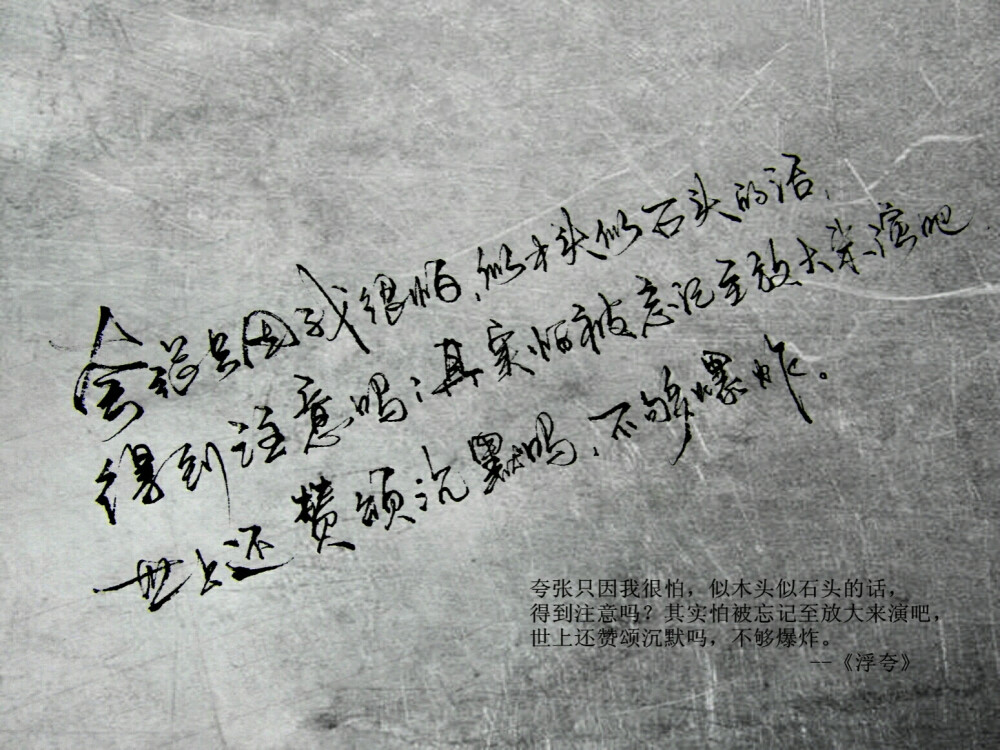 夸张只因我很怕，似木头似石头的话，
得到注意吗？其实怕被忘记至放大来演吧
世上还赞颂沉默吗，不够爆炸。
夸张只因我很怕，似木头似石头的话，
得到注意吗？其实怕被忘记至放大来演吧，
世上还赞颂沉默吗，不够爆炸。
--《浮夸》